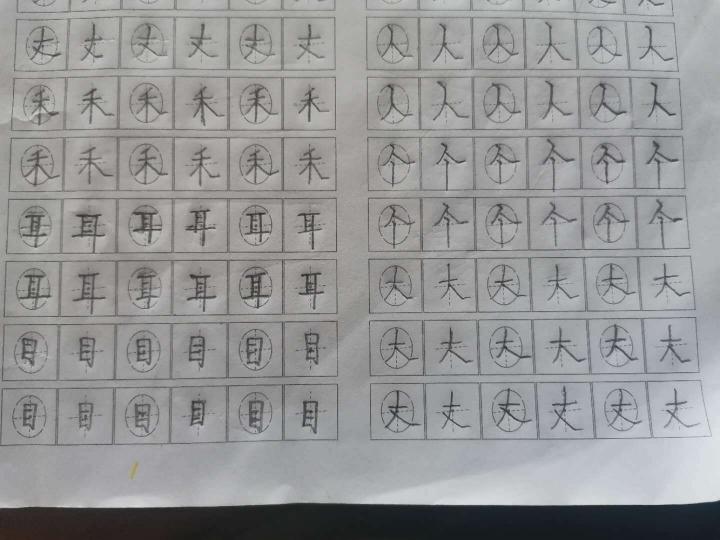 丈丈丈丈丈丈
禾禾禾禾禾禾
禾禾禾禾禾禾
耳耳耳耳耳耳
耳耳耳耳耳耳
目目目目目目
目目目目目目
人人人人人人
人人人人人人
个个个个个个
个个个个个个
大大大大大大
大大大大大大
丈丈丈丈丈丈